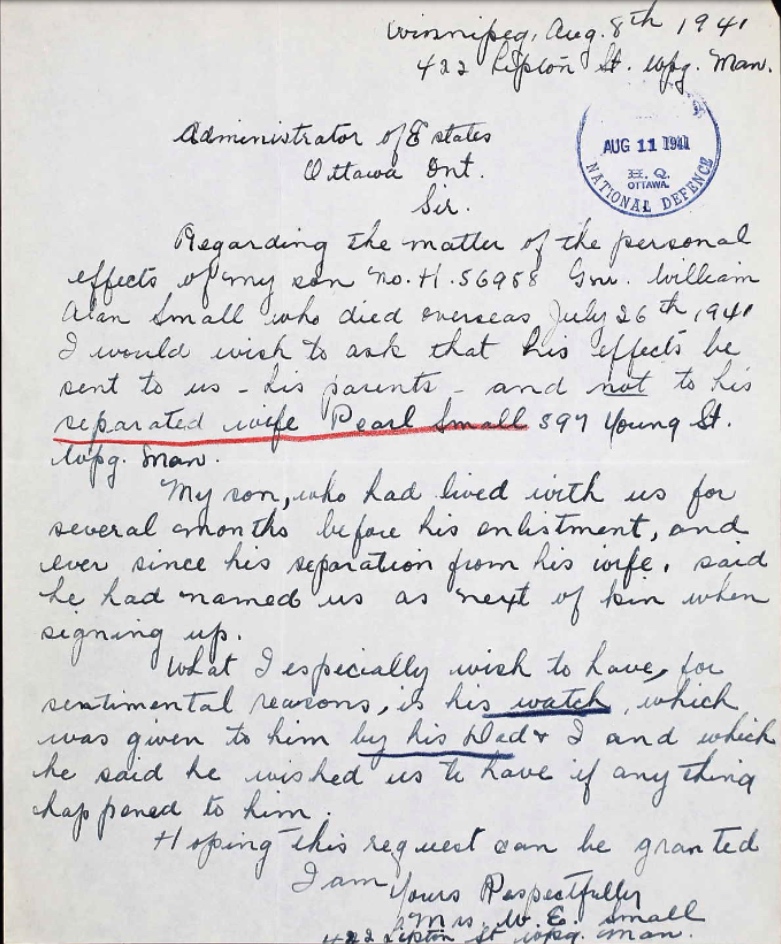 Winnipeg, Aug. 8th 1941
422 Lipton St. Wpg. Man.
Administrator of Estates
Ottawa Ont.
Sir.
AUG 11 1941
H. Q.
OTTAWA.
NATIONAL DEFENCE
Regarding the matter of the personal
effects of my son No. H. 56958 Gnr. William
Alan Small who died overseas July 26th, 1941
I would wish to ask that his effects be
sent to us - his parents - and not to his
separated wife Pearl Small 597 Young St.
Wpg. Man.
My son, who had lived with us for
several months before his enlistment, and
ever since his separation from his wife, said
he had named us as next of kin when
signing up.
What I especially wish to have, for
sentimental reasons, is his watch, which
was given to him by his Dad & I and which
he said he wished us to have if any thing
happened to him.
Hoping this request can be granted
I am
Yours Respectfully
Mrs. W. E. Small
422 Lipton St Wpg. Man.